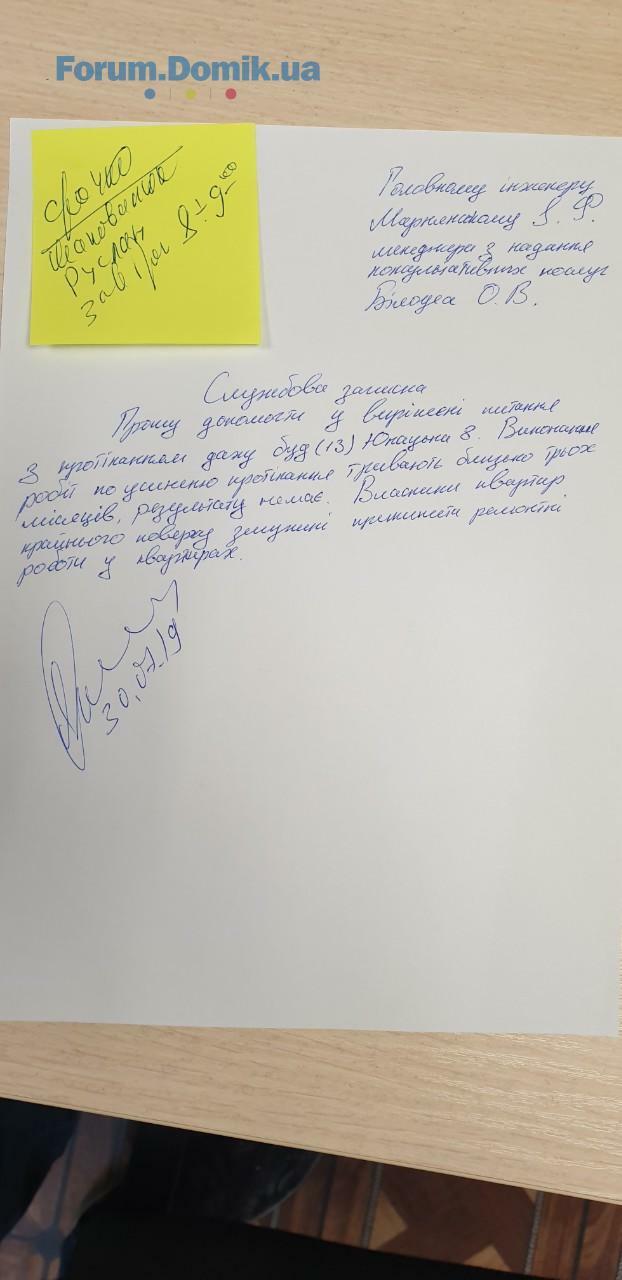 Forum.Domik.ua
Срочно
Руслан
Головному інженеру
менеджера з надання
консультативних послуг
Білодєд О.В.
Службова записка
Прошу допомогти у вирішені питання
З протіканням даху буд (13) Юнацька 8. Виконання
робіт по усуненю протікання тривають близько трьох
місяців, результату немає. Власники квартир
крайнього поверху змушені припинити ремонтні
роботи у квартирах.
30.07.19